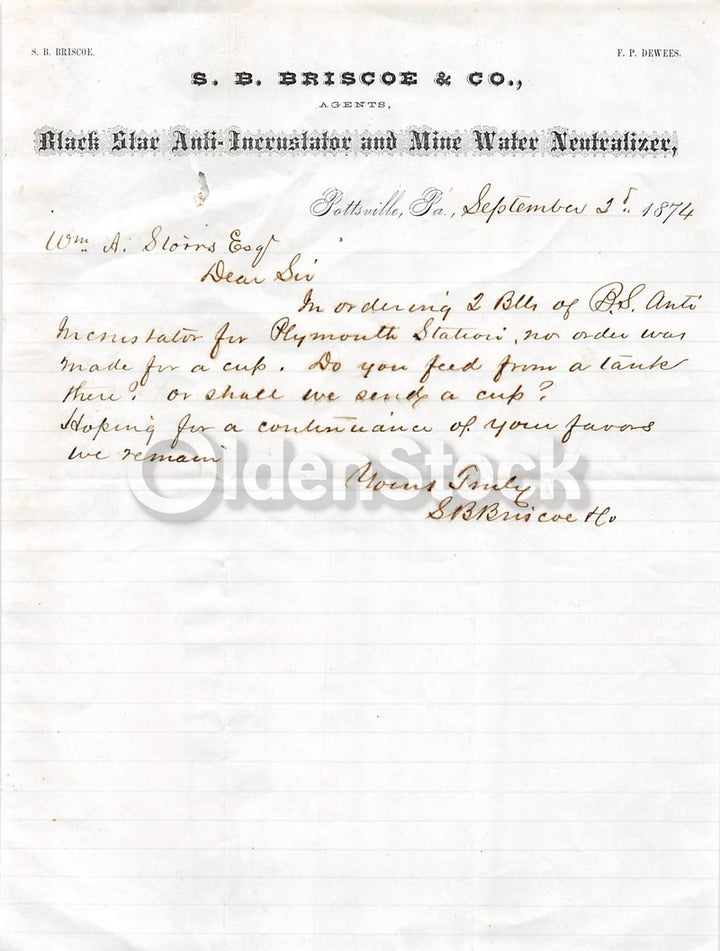 S. B. BRISCOE. F. P. DEWEES.
S. B. BRISCOE & CO.,
AGENTS,
Black Star Anti-Incrustator and Mine Water Neutralizer,
Pottsville, Pa., September 2d. 1874
Wm A. Storrs Esqr
Dear Sir
In ordering 2 Blls of B.S. Anti
Incrustator for Plymouth Station, no order was
made for a cup. Do you feed from a tank
there? or shall we send a cup?
Hoping for a continuance of your favors
we remain
Yours Truly
S B Briscoe & Co
OldenStock